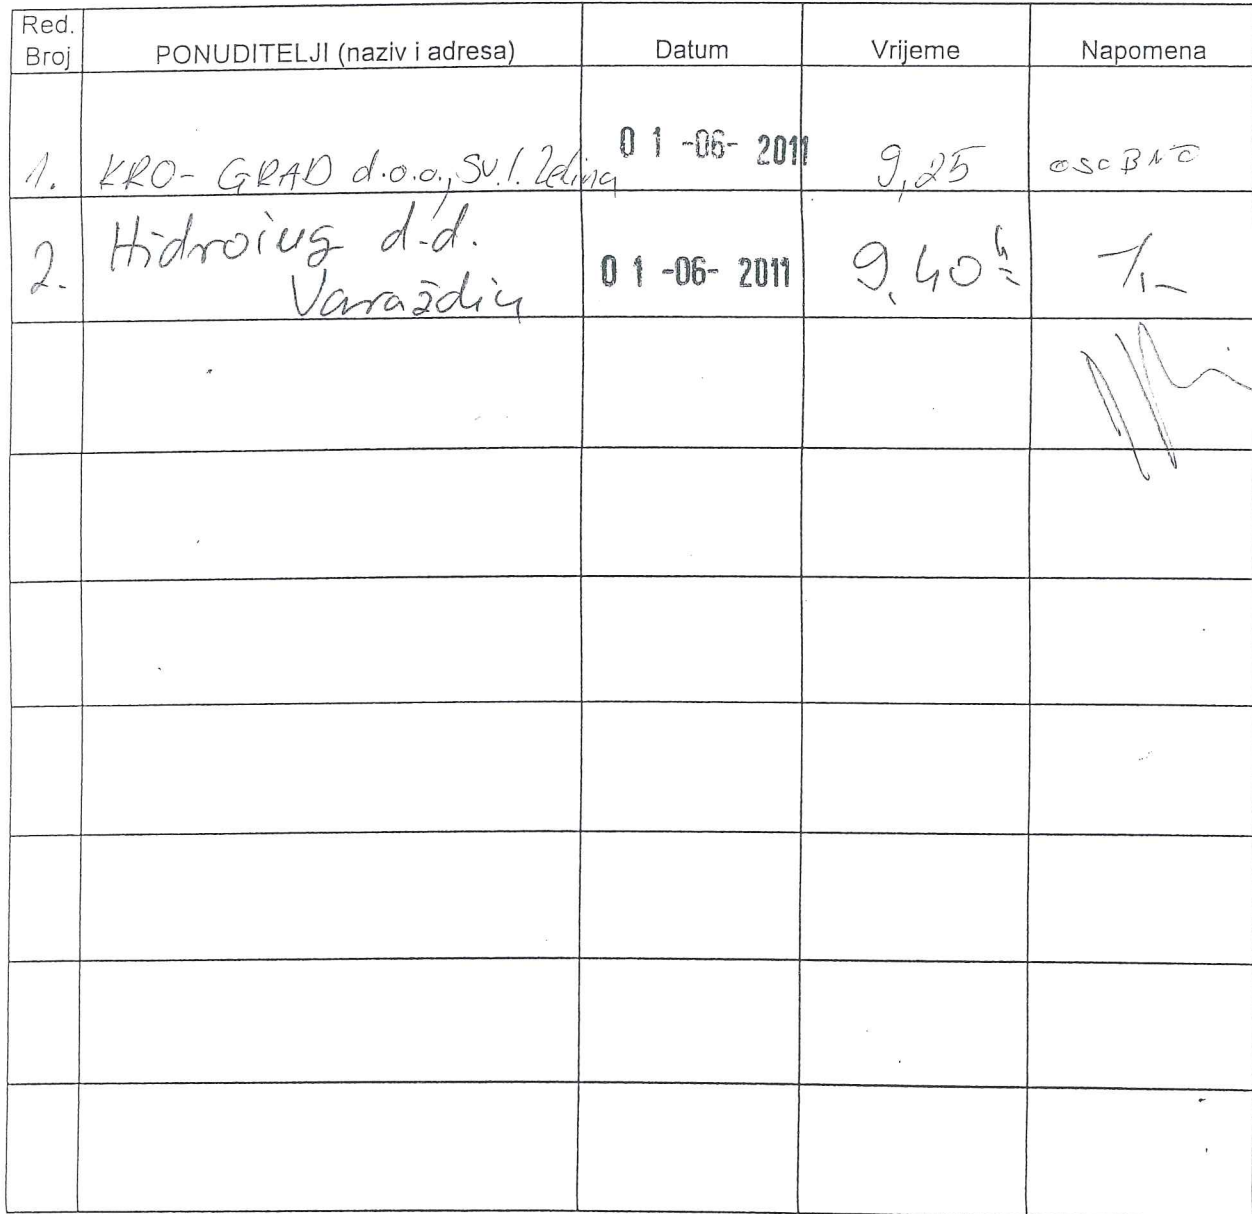 Red.
Broj
PONUDITELJI (naziv i adresa)
Datum
Vrijeme
Napomena
1. KRO-GRAD d.o.o., SV. I. Zelina 01-06-2011 9,25 OSOBNO
2. Hidroing d.d. 01-06-2011 9,40 h
Varaždin